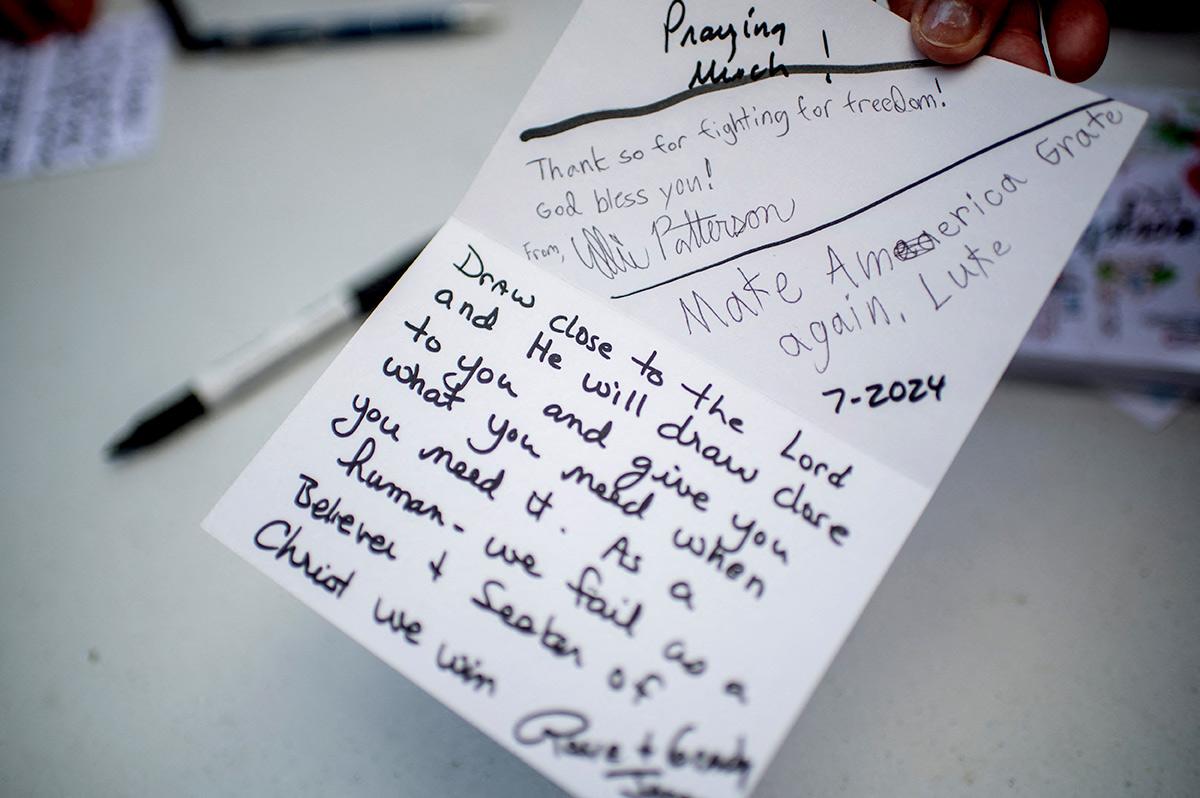 Praying
Much!
Thank so for fighting for freedom!
God bless you!
From, Patterson
Make America Grate
again. Luke
7-2024
Draw close to the Lord
and He will draw close
to you and give you
what you need when
you need it. As a
human - we fail as a
Believer + Seeker of
Christ we win
+